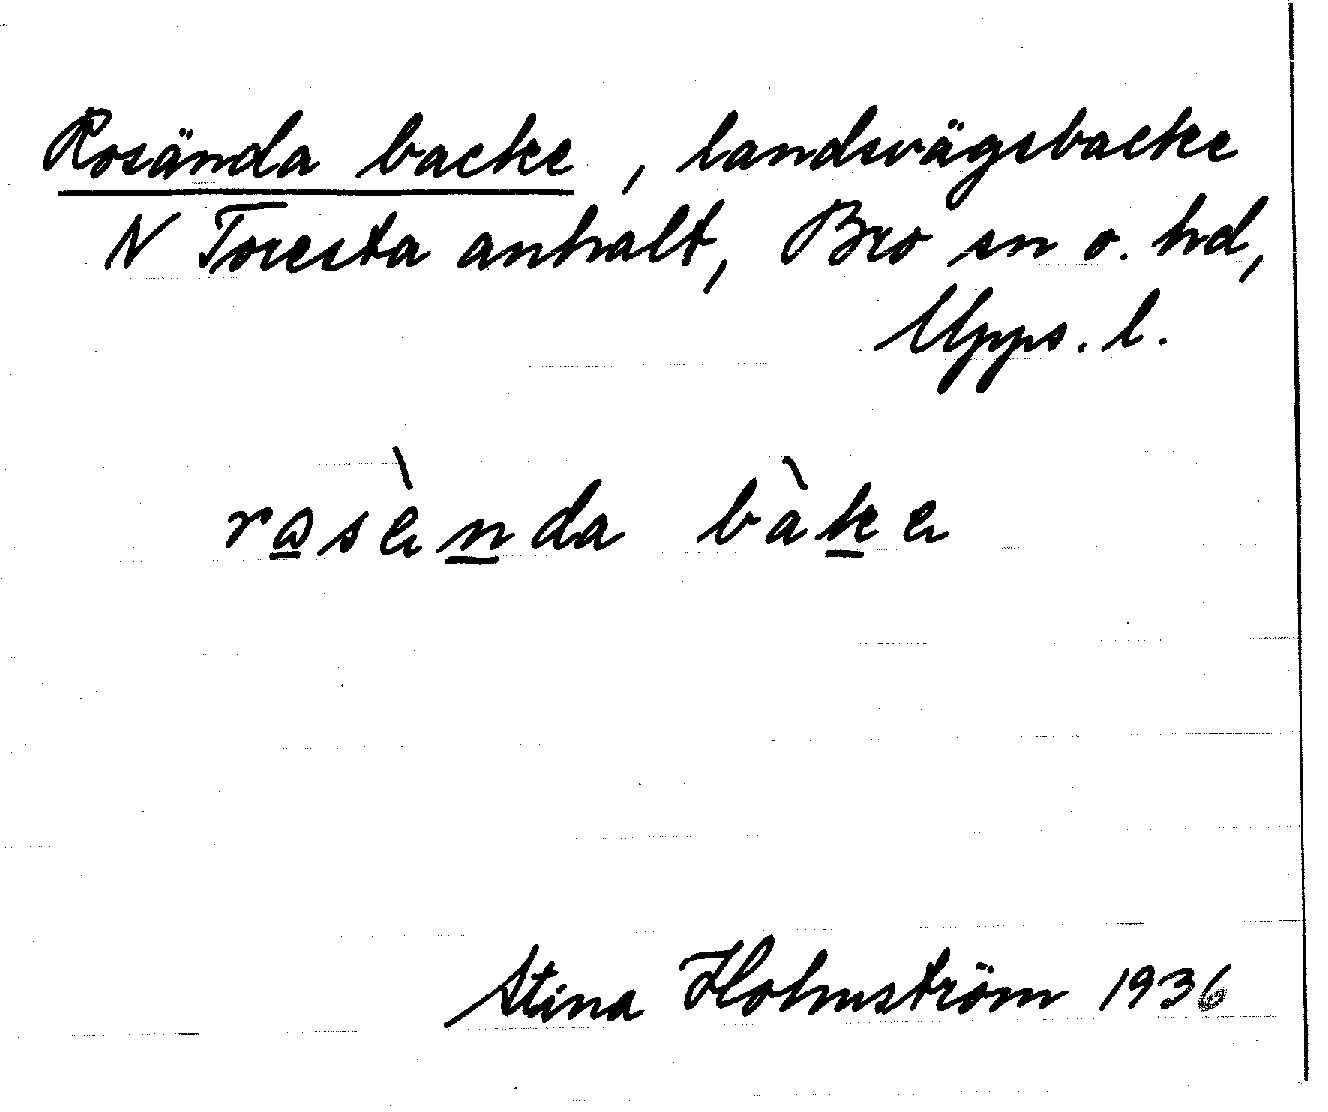 Rosända backe, landsvägsbacke
N Toresta anhalt, Bro sn o. hd,
Upps. l.
rasènda bàke
Stina Holmström 1936